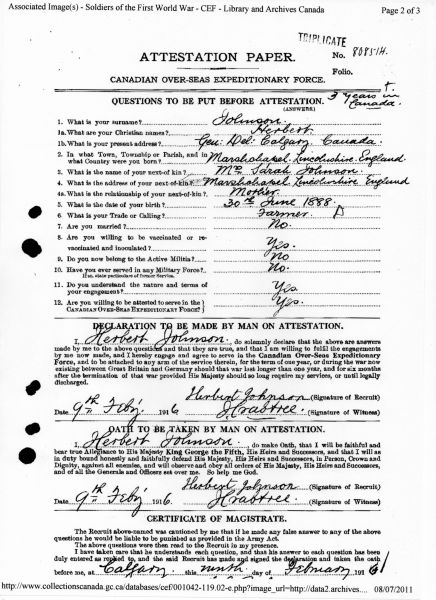 Associated Image(s) - Soldiers of the First World War - CEF - Library and Archives Canada Page 2 of 3
TRIPLICATE
ATTESTATION PAPER. No. 808514.
Folio.
CANADIAN OVER-SEAS EXPEDITIONARY FORCE.
3 years in Canada.
QUESTIONS TO BE PUT BEFORE ATTESTATION.
(ANSWERS.)
1. What is your surname? Johnson.
1a. What are your Christian names? Herbert
1b. What is your present address? Gen: Del: Calgary, Canada.
2. In what Town, Township or Parish, and in
what Country were you born? Marshchapel, Lincolnshire, England
3. What is the name of your next-of-kin? Mrs Sarah Johnson.
4. What is the address of your next-of-kin? Marshchapel Lincolnshire England
4a. What is the relationship of your next-of-kin? Mother.
5. What is the date of your birth? 30th June 1888.
6. What is your Trade or Calling? Farmer.
7. Are you married? No.
8. Are you willing to be vaccinated or re-
vaccinated and inoculated? Yes.
9. Do you now belong to the Active Militia? No
10. Have you ever served in any Military Force? No.
If so, state particulars of former Service.
11. Do you understand the nature and terms of
your engagement? Yes
12. Are you willing to be attested to serve in the
CANADIAN OVER-SEAS EXPEDITIONARY FORCE? Yes.
DECLARATION TO BE MADE BY MAN ON ATTESTATION.
I, Herbert Johnson, do solemnly declare that the above are answers
made by me to the above questions and that they are true, and that I am willing to fulfil the engagements
by me now made, and I hereby engage and agree to serve in the Canadian Over-Seas Expeditionary
Force, and to be attached to any arm of the service therein, for the term of one year, or during the war now
existing between Great Britain and Germany should that war last longer than one year, and for six months
after the termination of that war provided His Majesty should so long require my services, or until legally
discharged.
Herbert Johnson (Signature of Recruit)
Date 9th Feby. 1916 J Crabtree. (Signature of Witness)
OATH TO BE TAKEN BY MAN ON ATTESTATION.
I, Herbert Johnson, do make Oath, that I will be faithful and
bear true Allegiance to His Majesty King George the Fifth, His Heirs and Successors, and that I will as
in duty bound honestly and faithfully defend His Majesty, His Heirs and Successors, in Person, Crown and
Dignity, against all enemies, and will observe and obey all orders of His Majesty, His Heirs and Successors,
and of all the Generals and Officers set over me. So help me God.
Herbert Johnson (Signature of Recruit)
Date 9th Feby 1916. J Crabtree. (Signature of Witness)
CERTIFICATE OF MAGISTRATE.
The Recruit above-named was cautioned by me that if he made any false answer to any of the above
questions he would be liable to be punished as provided in the Army Act.
The above questions were then read to the Recruit in my presence.
I have taken care that he understands each question, and that his answer to each question has been
duly entered as replied to, and the said Recruit has made and signed the declaration and taken the oath
before me, at Calgary this ninth day of February 1916
http://www.collectionscanada.gc.ca/databases/cef/001042-119.02-e.php?image_url=http://data2.archives.... 08/07/2011